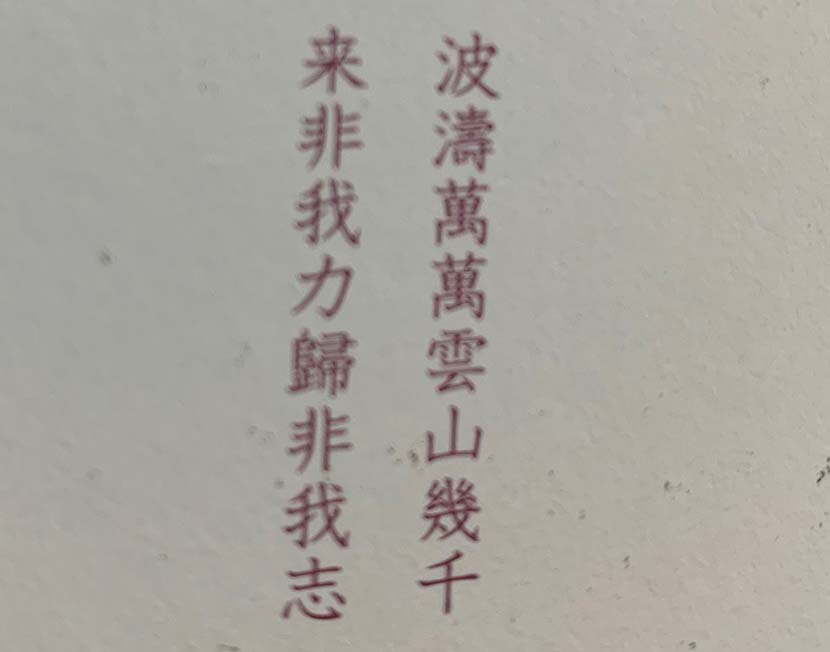 波濤萬萬雲山幾千
来非我力歸非我志